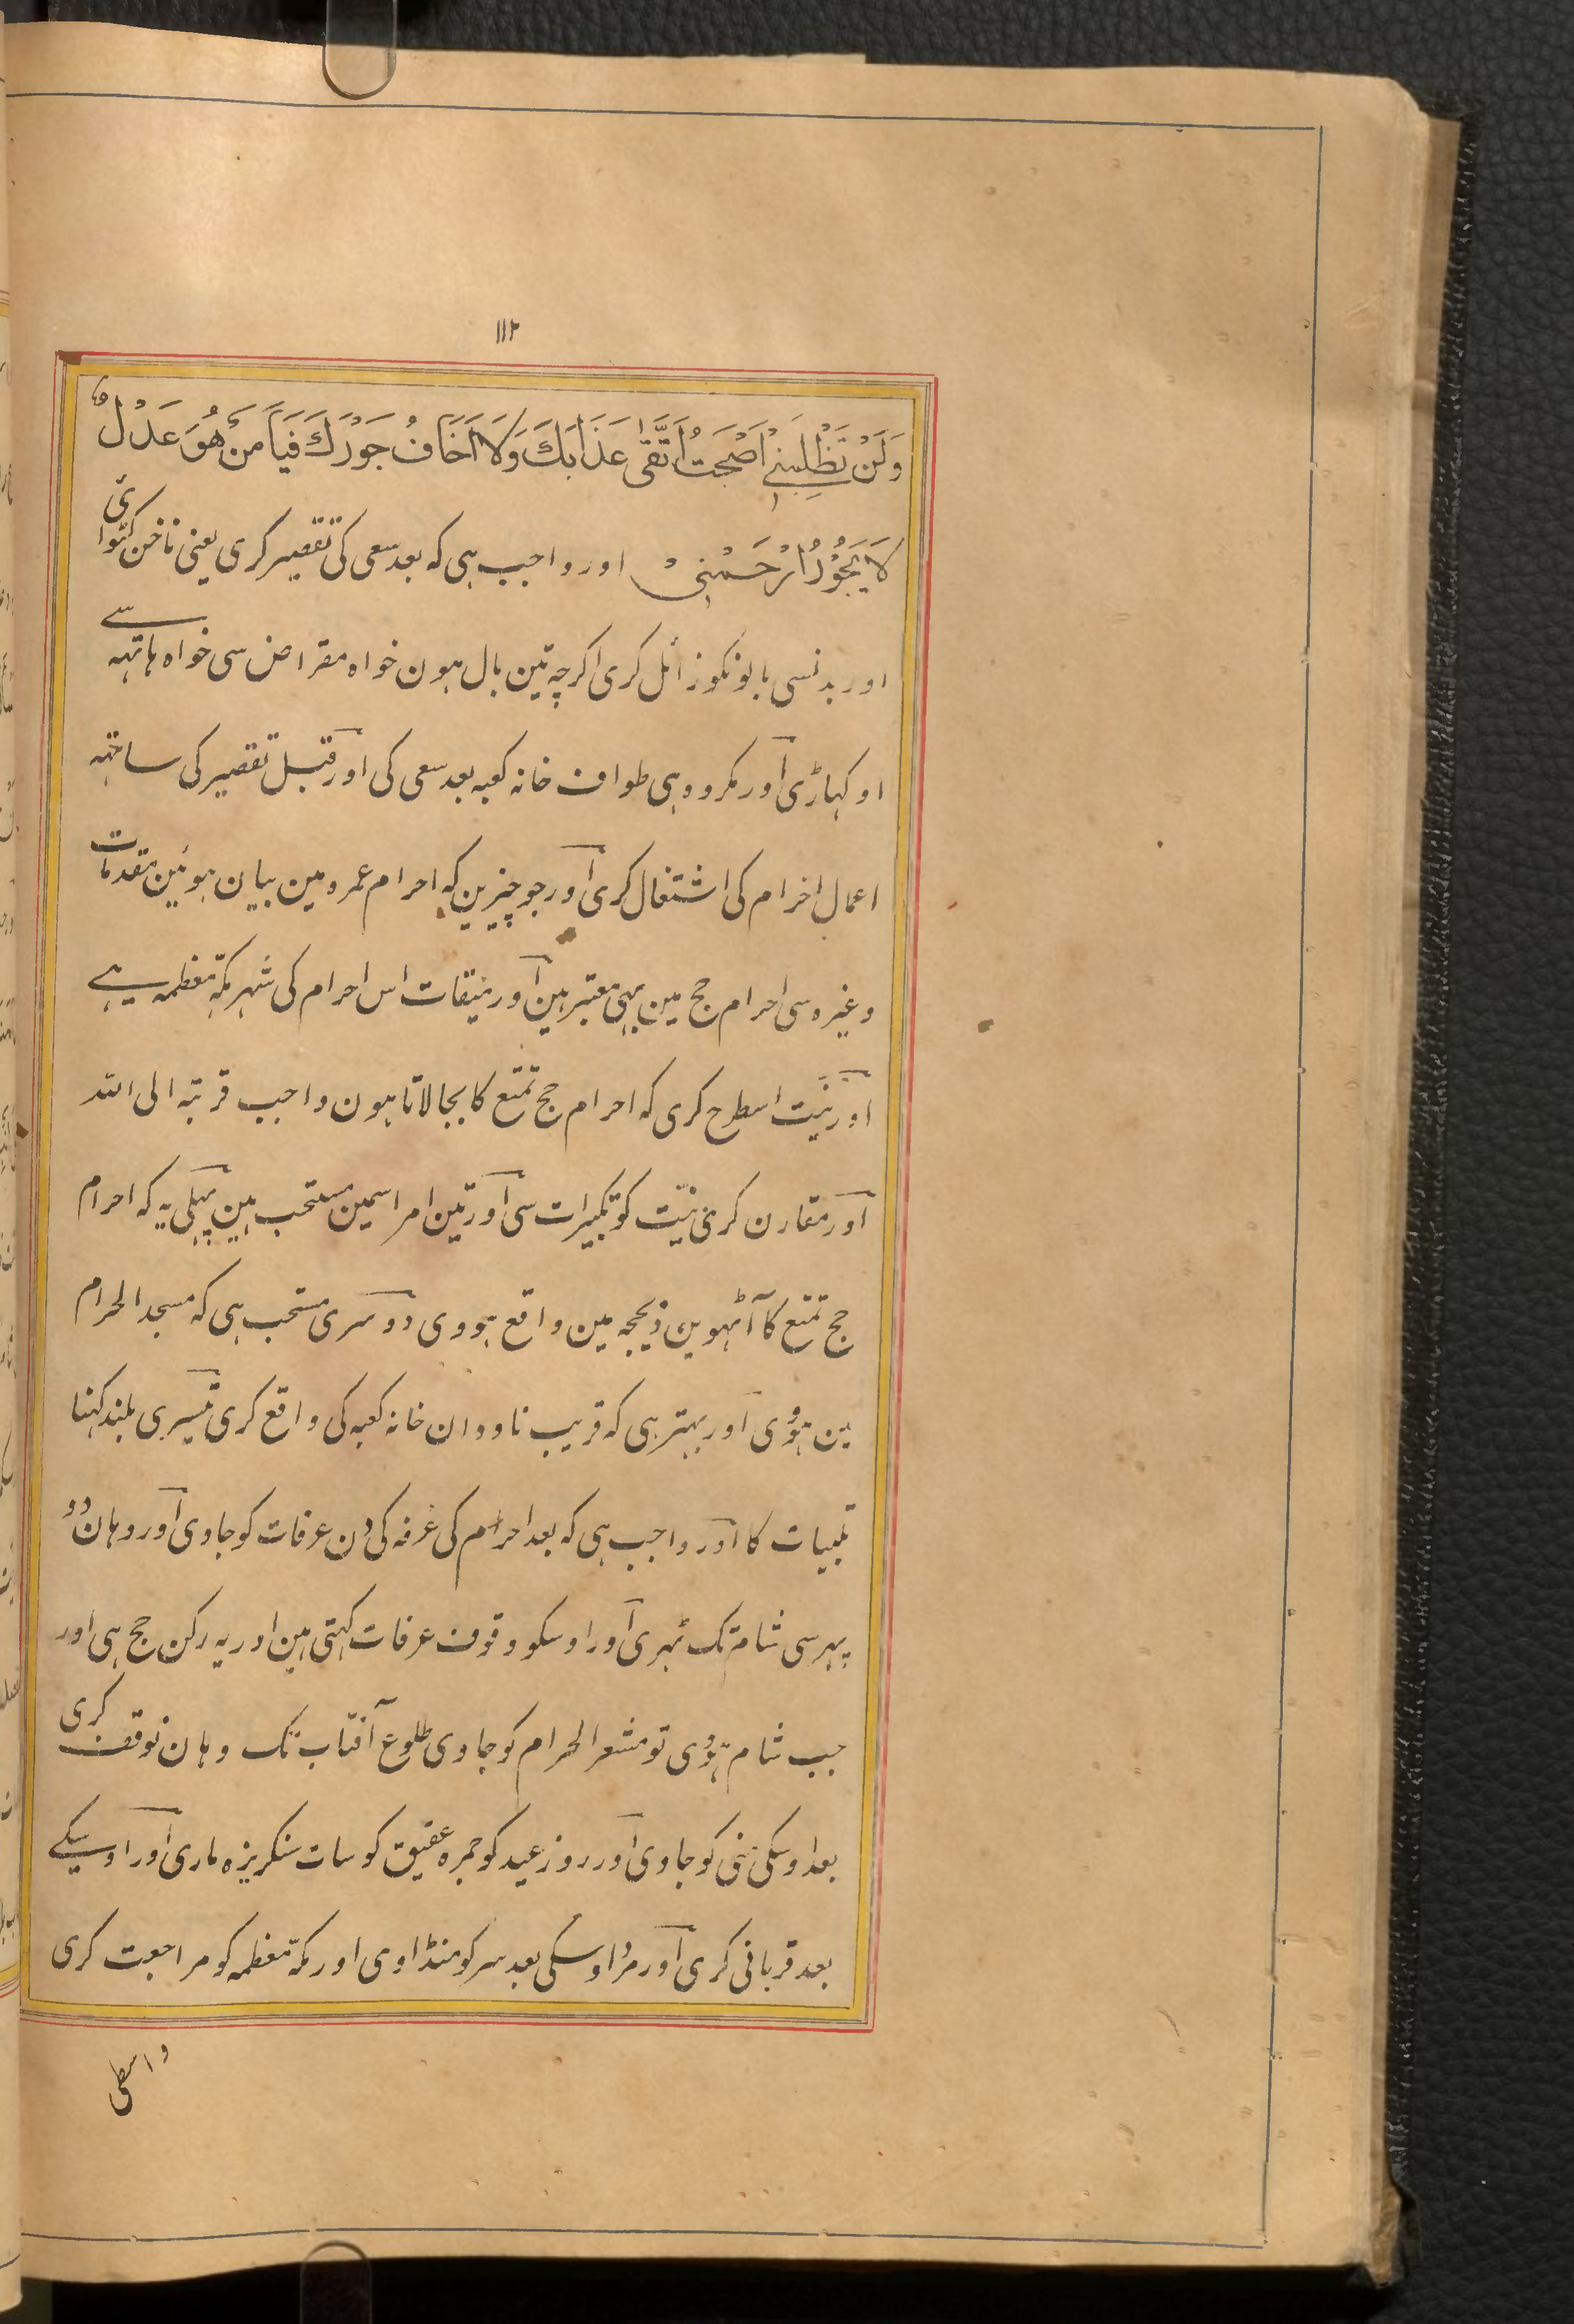 ١١٢
وَلَنْ تَظْلِمَنِیْ اَصْبَحْتُ اَتَّقِیْ عَذَابَكَ وَلَا اَخَافُ جَوْرَكَ فَیَا مَنْ هُوَ عَدْلٌ
لَا یَجُوْرُ اِرْحَمْنِیْ اور واجب ہی کہ بعد سعی کی تقصیر کری یعنی ناخن کٹوائی
اور بدنسی بالونکو زائل کری اکرچہ تین بال ہون خواہ مقراض سی خواہ ہاتہہ سے
اوکہاڑی اور مکروہ ہی طواف خانہ کعبہ بعد سعی کی اور قبل تقصیر کی ساتہہ
اعمال احرام کی اشتغال کری اور جو چیزین کہ احرام عمرہ مین بیان ہوئین مقدمات
وغیرہ سی احرام حج مین بہی معتبر ہین اور میقات اس احرام کی شہر مکّہ معظمہ ہے
اور نیّت اسطرح کری کہ احرام حج تمتع کا بجا لاتا ہون واجب قربتہ الی اللہ
اور مقارن کری نیّت کو تکبیرات سی اور تین امر اسمین مستحب ہین پہلی یہ کہ احرام
حج تمتع کا آٹہوین ذیحجہ مین واقع ہووی دوسری مستحب ہی کہ مسجد الحرام
مین ہوُوی اور بہتر ہی کہ قریب ناودان خانہ کعبہ کی واقع کری تیسری بلند کہنا
تلبیات کا اور واجب ہی کہ بعد احرام کی عرفہ کی دن عرفات کو جاوی اور وہان دو
پہر سی شام تک ٹہری اور اوسکو وقوف عرفات کہتی ہین اور یہ رکن حج ہی اور
جب شام ہوُوی تو مشعر الحرام کو جاوی طلوع آفتاب تک وہان توقف کری
بعد اوسکی منی کو جاوی اور روز عید کو جمرہ عقیق کو سات سنکریزہ ماری اور اوسیکے
بعد قربانی کری اور مرد اوسکی بعد سر کو منڈاوی اور مکّہ معظمہ کو مراجعت کری
واسطی